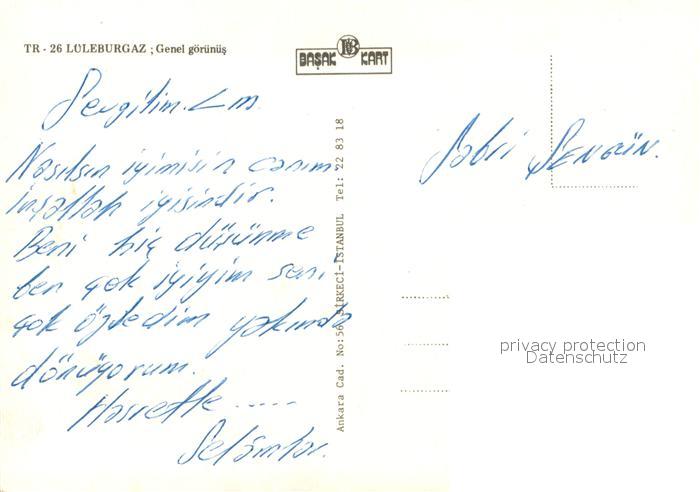 TR - 26 LÜLEBURGAZ ; Genel görünüş
BAŞAK KART
Sevgilim.
Nasılsın iyimisin canım.
İnşallah iyisindir.
Beni hiç düşünme
ben çok iyiyim seni
çok özledim yakında
dönüyorum.
Hasretle .....
Selamlar.
Ankara Cad. No:56 SİRKECİ-İSTANBUL Tel: 22 83 18
Sabri ŞENGÜN.
privacy protection
Datenschutz